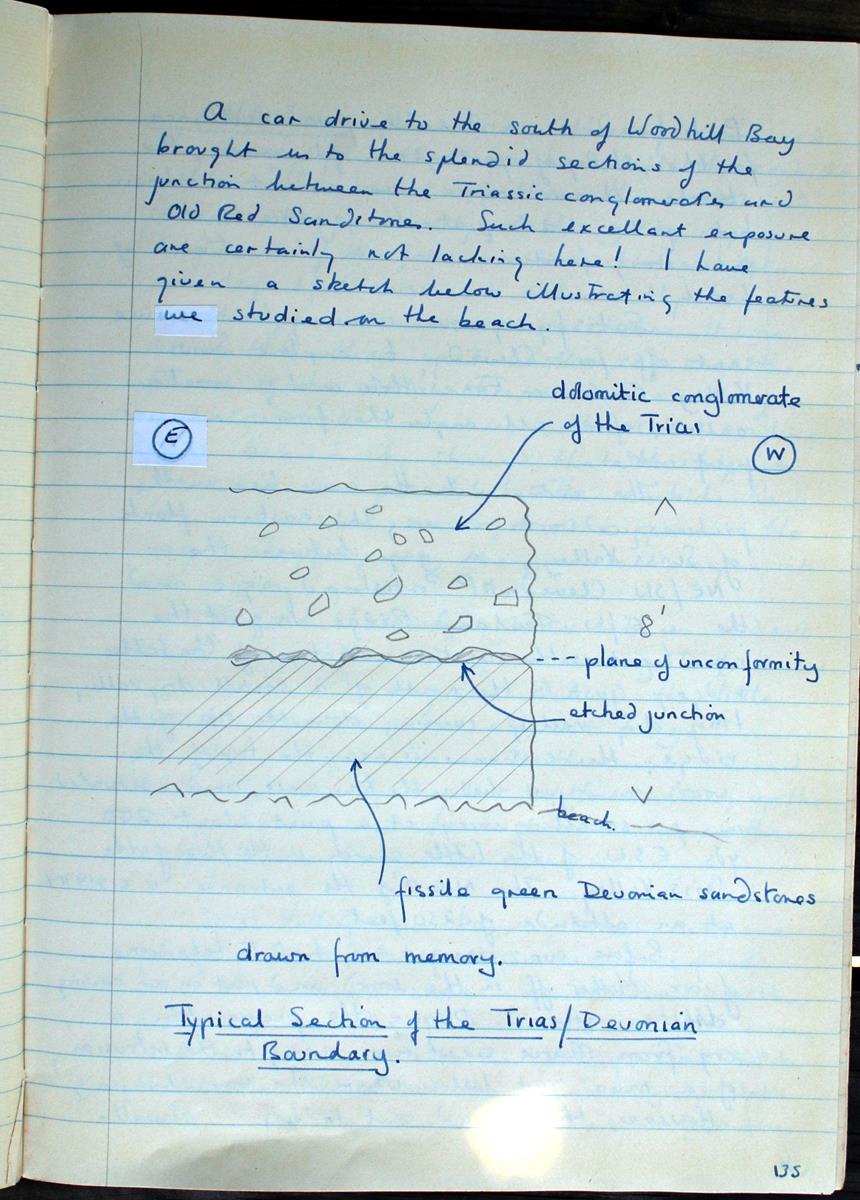 A car drive to the south of Woodhill Bay
brought us to the splendid sections of the
junction between the Triassic conglomerates and
Old Red Sandstones. Such excellant exposure
are certainly not lacking here! I have
given a sketch below illustrating the features
we studied on the beach.
dolomitic conglomerate
of the Trias
E
W
8'
--- plane of unconformity
etched junction
beach.
fissile green Devonian sandstones
drawn from memory.
Typical Section of the Trias/Devonian
Boundary.
135